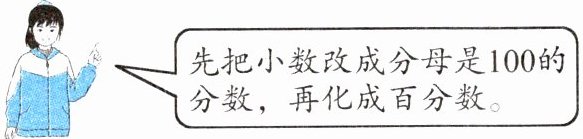 先把小数改成分母是100的
分数，再化成百分数。